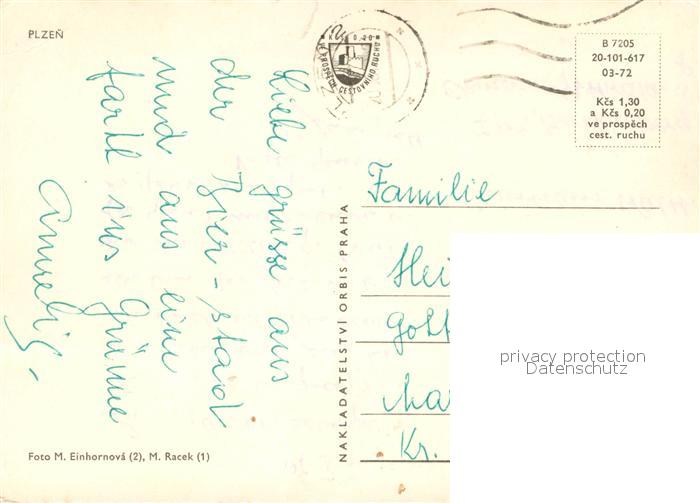 PLZEŇ
Liebe grüsse aus
der Bier-stadt
und aus eine
fartl ins Grünne
Kčs 0,20
VE PROSPĚCH CESTOVNÍHO RUCHU
B 7205
20-101-617
03-72
Kčs 1,30
a Kčs 0,20
ve prospěch
cest. ruchu
NAKLADATELSTVÍ ORBIS PRAHA
Familie
Hei
Kr.
privacy protection
Datenschutz
Foto M. Einhornová (2), M. Racek (1)